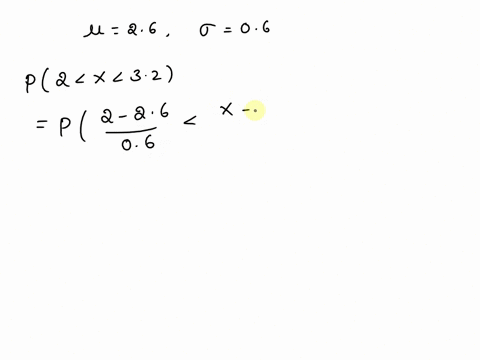 μ = 2.6, σ = 0.6
P(2 < x < 3.2)
= P( \frac{2 - 2.6}{0.6} < x -